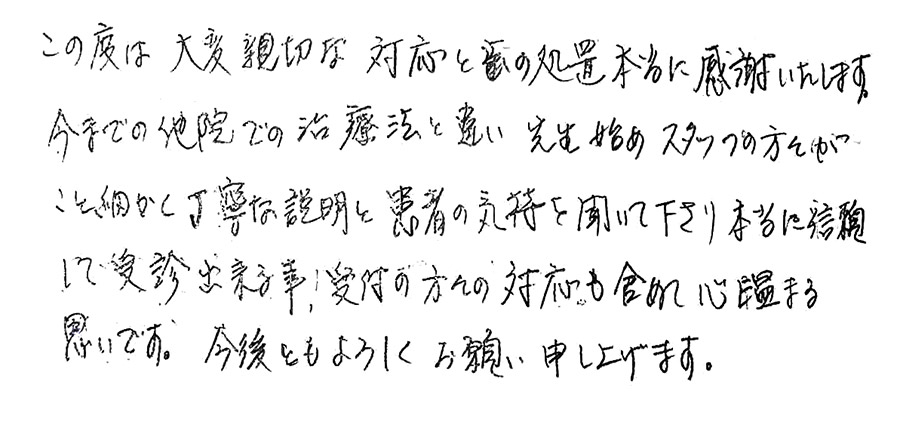 この度は 大変親切な 対応と歯の処置本当に感謝いたします。
今までの他院での治療法と違い 先生始め スタッフの方々が
こと細かく丁寧な説明と患者の気持を聞いて下さり本当に信頼
して受診出来る事!受付の方々の対応も含めて心温まる
思いです。今後ともよろしくお願い申し上げます。